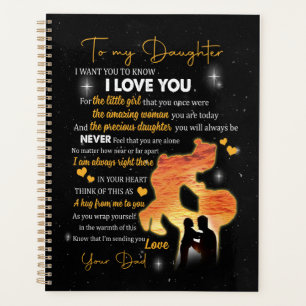 To my Daughter
I WANT YOU TO KNOW
I LOVE YOU
For the little girl that you once were
the amazing woman you are today
And the precious daughter you will always be
NEVER Feel that you are alone
No matter how near or far apart
I am always right there
IN YOUR HEART
THINK OF THIS AS
A hug from me to you
As you wrap yourself
in the warmth of this
Know that I'm sending you
Love
Your Dad